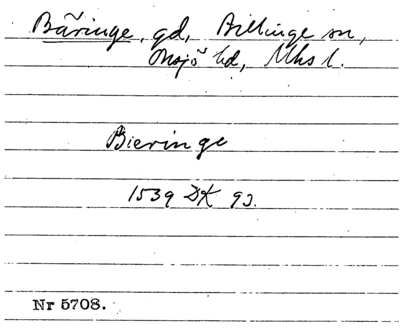 Bäringe, gd, Billinge sn,
Onsjö hd, Mhs l.
Bieringe
1539 DK 93.
Nr 5708.